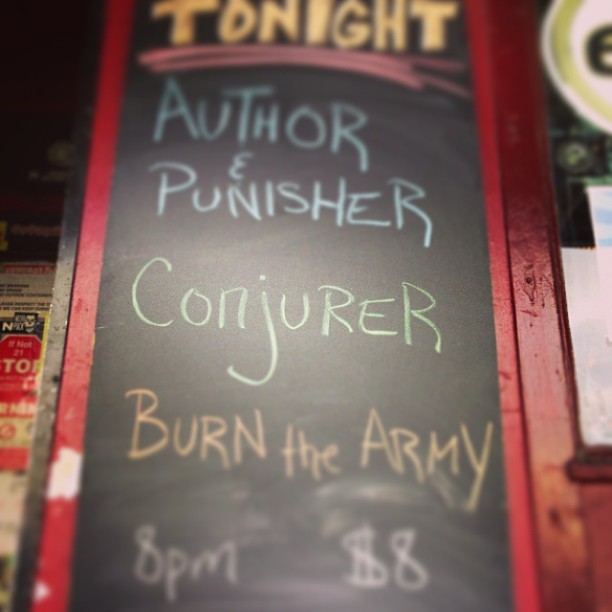 TONIGHT
AUTHOR
&
PUNISHER
CONjURER
BURN the ARMY
8pm $8
If Not
21
STOP